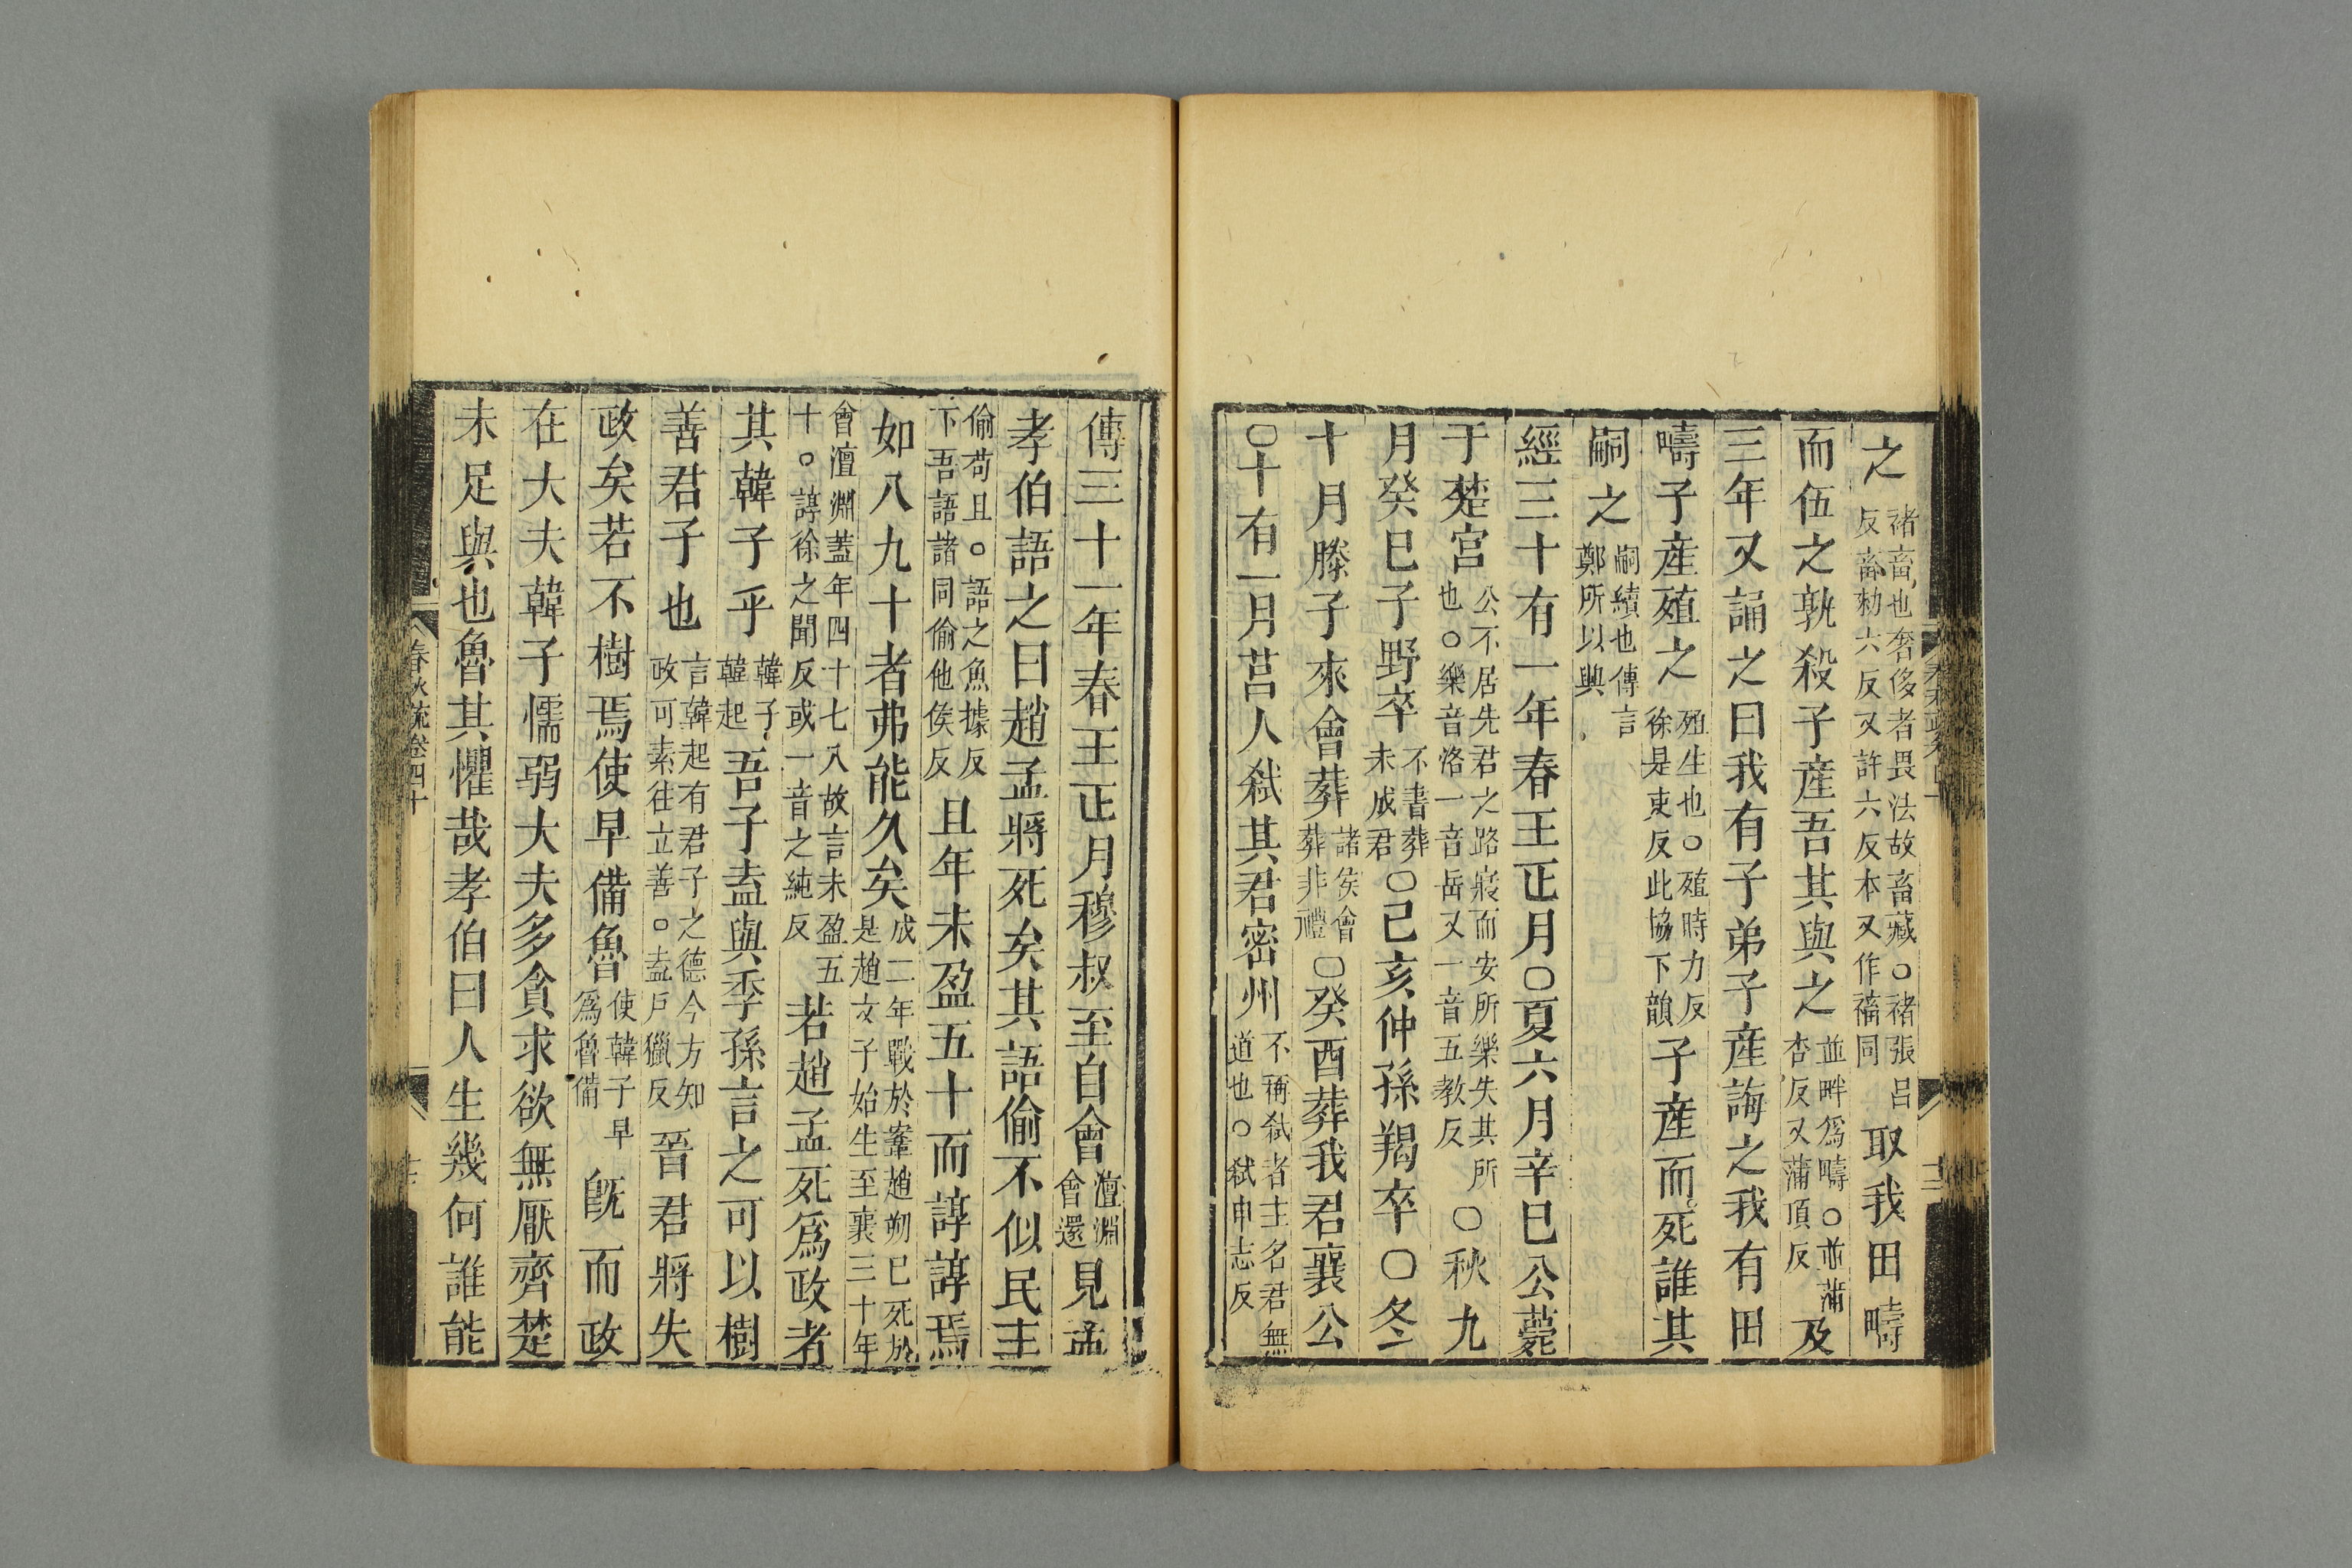 之褚畜也奢侈者畏法故畜藏○褚張呂反畜勑六反又許六反本又作稸同取我田疇
而伍之孰殺子產吾其與之並畔爲疇○並蒲杏反又蒲頂反及
三年又誦之曰我有子弟子產誨之我有田
疇子產殖之殖生也○殖時力反徐是吏反此協下韻子產而死誰其
嗣之嗣續也傳言鄭所以興
經三十有一年春王正月○夏六月辛巳公薨
于楚宮公不居先君之路寢而安所樂失其所也○樂音洛一音岳又一音五教反○秋九
月癸巳子野卒不書葬未成君○己亥仲孫羯卒○冬
十月滕子來會葬諸侯會葬非禮○癸酉葬我君襄公
○十有一月莒人弒其君密州不稱弒者主名君無道也○弒申志反
傳三十一年春王正月穆叔至自會澶淵會還見孟
孝伯語之曰趙孟將死矣其語偷不似民主
偷苟且○語之魚據反下吾語諸同偷他侯反且年未盈五十而諄諄焉
如八九十者弗能久矣成二年戰於鞌趙朔已死於是趙文子始生至襄三十年
會澶淵蓋年四十七八故言未盈五十○諄徐之閏反或一音之純反若趙孟死爲政者
其韓子乎韓子韓起吾子盍與季孫言之可以樹
善君子也言韓起有君子之德今方知政可素往立善○盍戶獵反晉君將失
政矣若不樹焉使早備魯使韓子早爲魯備既而政
在大夫韓子懦弱大夫多貪求欲無厭齊楚
未足與也魯其懼哉孝伯曰人生幾何誰能
春秋疏卷四十